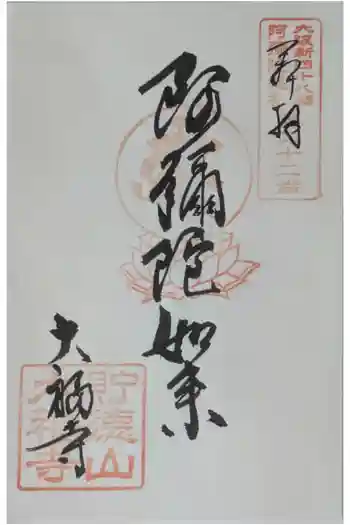 奉拝
阿彌陀如来
大福寺
大阪新四十八願
阿
十二番
貯徳山
大福寺